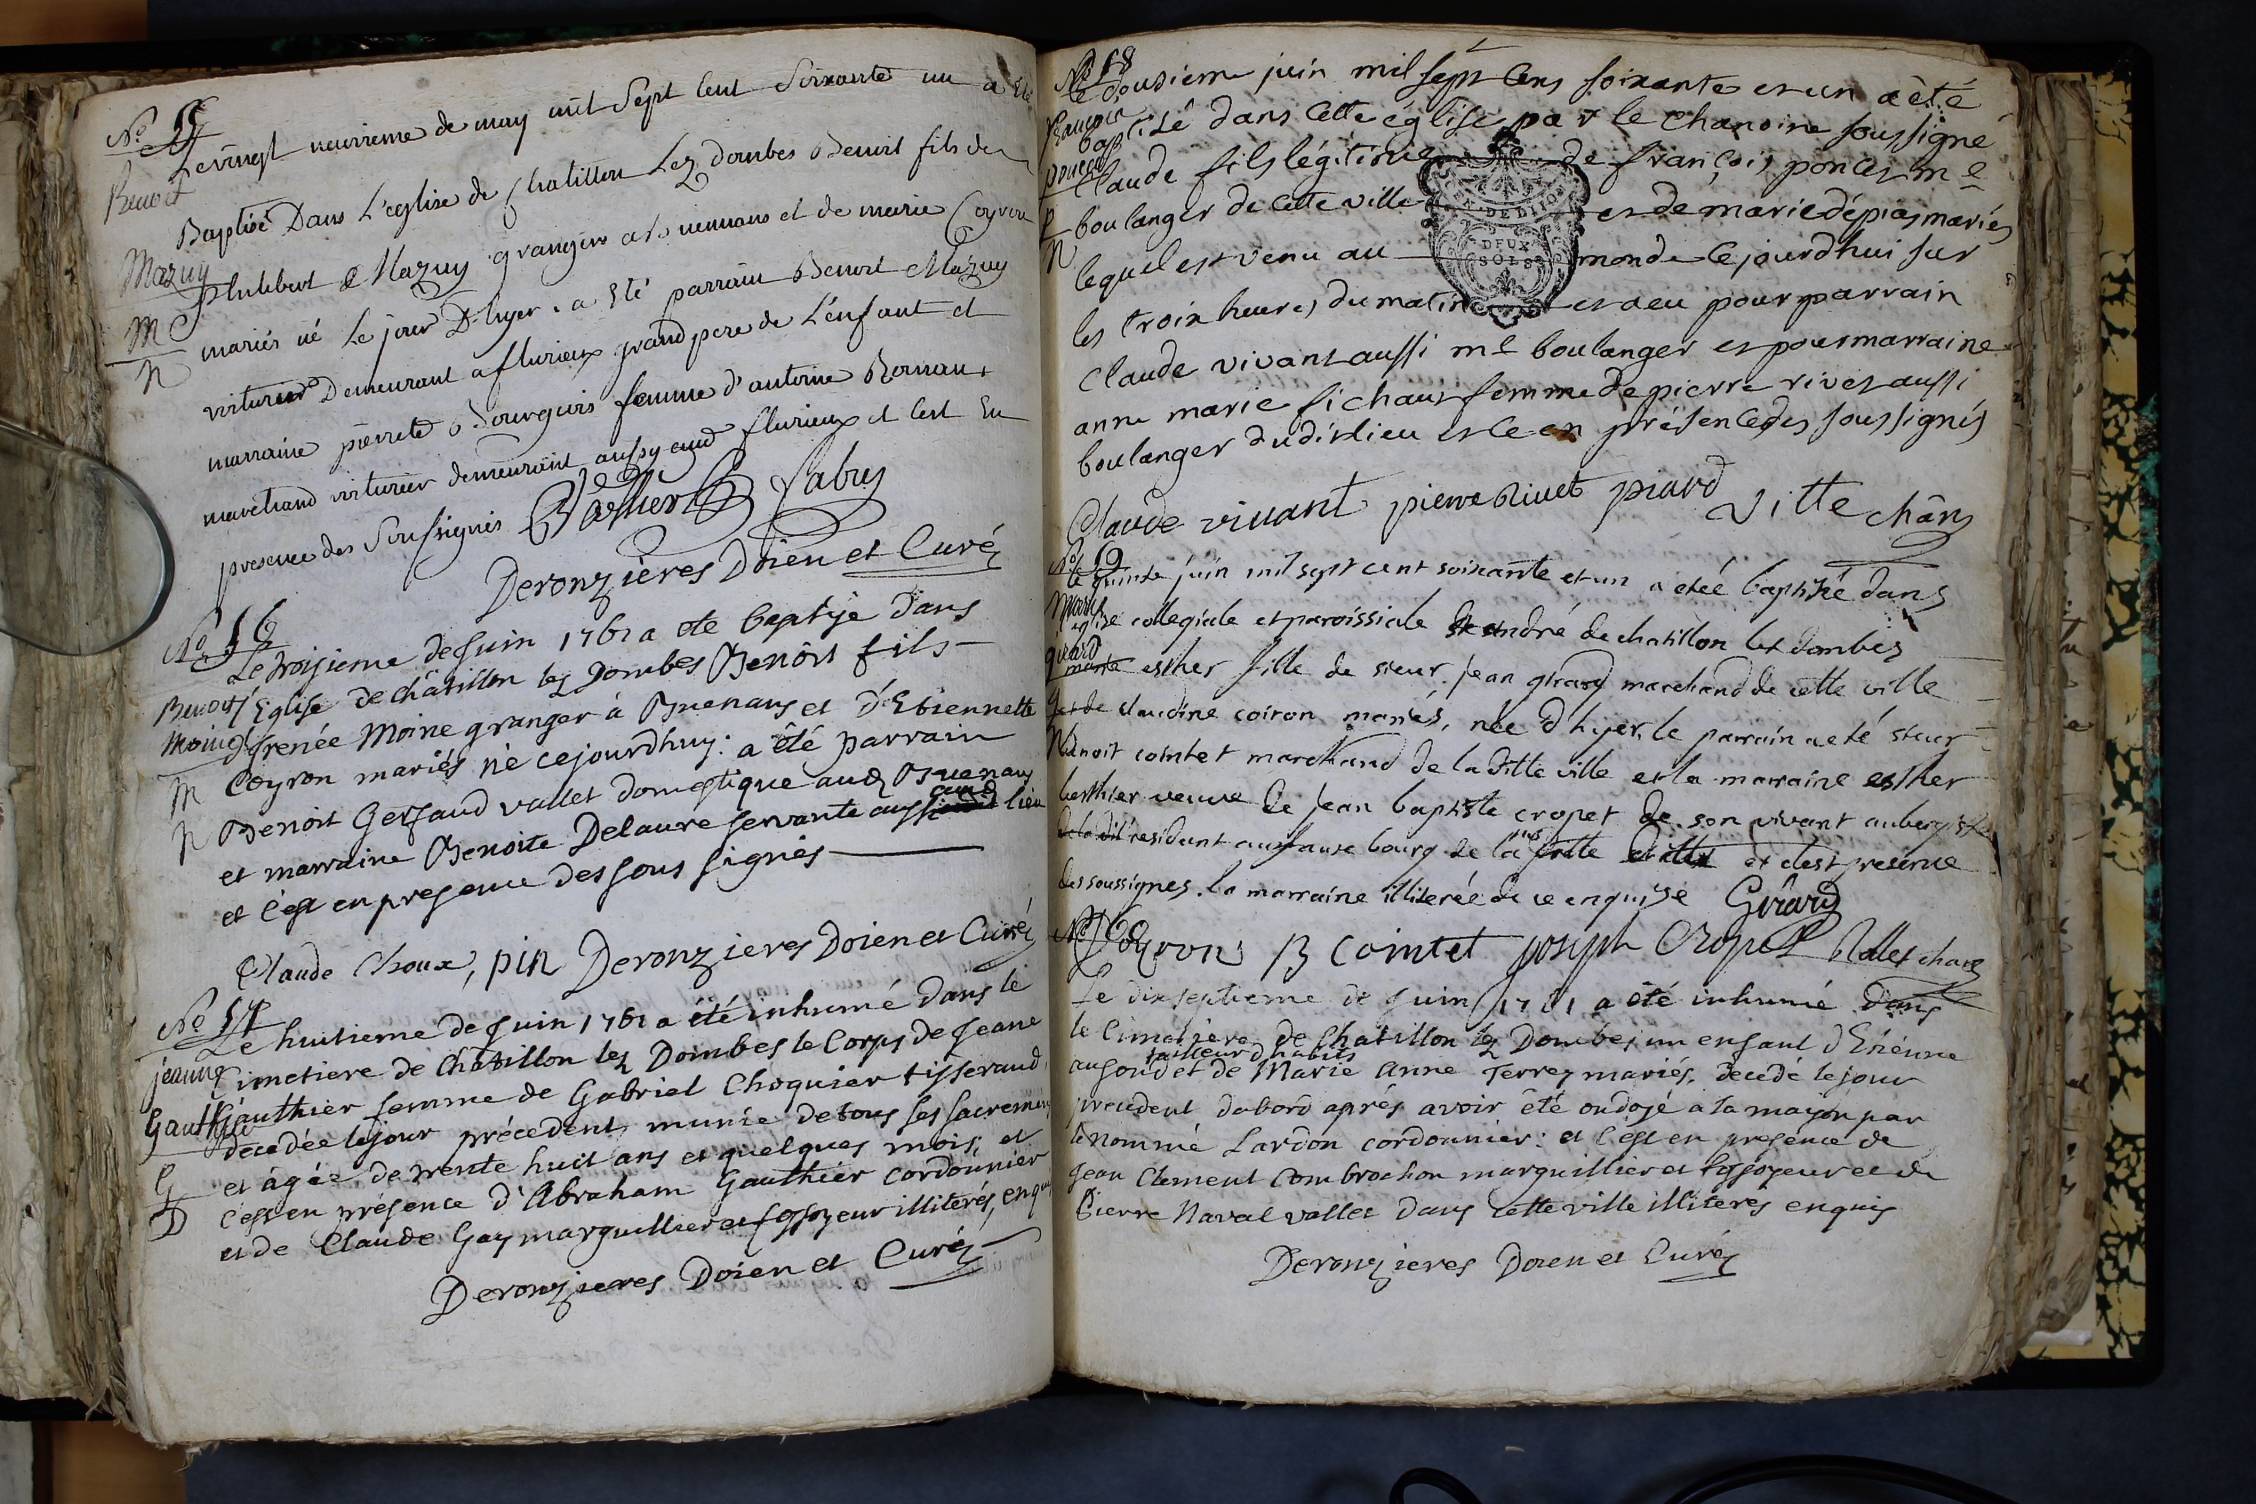 No 15
Le vingt neuvieme de may mil Sept Cent Soixante un a Eté
Benoit
Baptisé Dans L'eglise de Chatillon Lez Dombes Benoit fils de
Mazuy
philibert Mazuy granger a buenans et de marie Coyron
M
mariés né Le jour D'hyer. a Eté parrain Benoit Mazuy
N
voiturier Demeurant a flurieux grand pere de L'enfant et
marraine pierrette Bourgeois femme d'antoine Roman
marchand voiturier demeurant aussy aud flurieux et Cest En
presence des Soussignés Fabry
Deronzières Doien et Curé
No 16
Le troisieme de Juin 1761 a été baptisé dans
Benoit L'Eglise de châtillon lez Dombes Benoit fils
Moine d'irenée Moine granger à Buenans et d'Etiennette
M Coyron mariés né cejourdhuy: a été parrain
N Benoit Gerfaud vallet domestique aud Buenans
et marraine Benoite Delaure servante aussi aud lieu
et c'est en presence des sous signés
Claude Choux, pin Deronzieres Doien et Curé
No 17
Le huitieme de Juin 1761 a été inhumé dans le
jeanne Cimetiere de Châtillon lez Dombes le Corps de Jeane
Gauthier Gauthier femme de Gabriel Choquier tisserand,
décédée le jour précedent, munie de tous ses sacremens
G et âgée de trente huit ans et quelques mois; et
D c'est en présence d'Abraham Gauthier cordonnier
et de Claude Gay marguillier et fossoyeur illiterés, enquis
Deronzieres Doien et Curé
No 18
le dousieme juin mil sept cens soixante et un a été
baptisé dans cette église par le chanoine soussigné
poncet Claude fils légitime de françois poncet me
P boulanger de cette ville et de marie dépias mariés
N lequel est venu au monde cejourdhui sur
GEN. DE DIJON
DEUX SOLS
les trois heures du matin et a eu pour parrain
Claude vivant aussi me boulanger et pour marraine
anne marie fichaut femme de pierre rivet aussi
boulanger dudit lieu et ce en présence des soussignés
Claude vivant pierre Rivet piard Vitte chân
No 19
le quinze juin mil sept cent soixante et un a eteé baptisée dans
l'eglise collegiale et paroissiale St andré de chatillon lez dombes
girard marie esther fille de sieur Jean girard marchand de cette ville
G et de claudine coiron mariés, née d'hyer, le parrain a eté sieur
N benoit cointet marchand de la ditte ville et la marraine esther
berthier veuve de Jean baptiste cropet de son vivant aubergiste
residant au faux bourg de la ditte ville et c'est presence
des soussignes. la marraine illiterée de ce enquise Girard
No 20
Coyron B Cointet Joseph Cropet Vallet chan
Le dixseptieme de Juin 1761 a été inhumé dans
le Cimetière de Chatillon lez Dombes un enfant d'Etiénne
tailleur d'habits
augoud et de Marie Anne Terrey mariés. decedé le jour
precedent dabord aprés avoir été ondoyé a la maison par
le nommé Lardon cordonnier: et c'est en presence de
Jean Clement Combrochon marguillier et fossoyeur et de
Pierre Naval vallet dans cette ville illiteres enquis
Deronzieres Doien et Curé